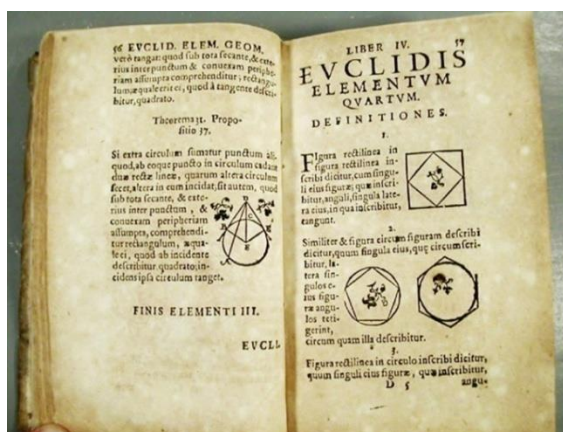 56 EVCLID. ELEM. GEOM.
verò tangat: quod sub tota secante, & exte
rius inter punctum & conuexam periphe
riam assumpta comprehenditur, rectangu
lum, æquale erit ei, quod à tangente descri
bitur, quadrato.
Theorema 31. Propo-
sitio 37.
Si extra circulum sumatur punctum ali
quod, ab eoque puncto in circulum cadant
duæ rectæ lineæ, quarum altera circulum
secet, altera in eum incidat, sit autem, quod
sub tota secante, & exte-
rius inter punctum, &
conuexam peripheriam
assumpta, comprehendi-
tur rectangulum, æqua-
le ei, quod ab incidente
describitur quadrato; in-
cidens ipsa circulum tanget.
FINIS ELEMENTI III.
EVCLI.
LIBER IV. 57
EVCLIDIS
ELEMENTVM
QVARTVM.
DEFINITIONES.
1.
Figura rectilinea in
figura rectilinea in-
scribi dicitur, cum singu-
li eius figuræ, quæ inscri-
bitur, anguli, singula late-
ra eius, in qua inscribitur,
tangunt.
2.
Similiter & figura circum figuram describi
dicitur, quum singula eius, quæ circumscri-
bitur, la-
tera sin-
gulos e-
ius figu-
ræ angu-
los teti-
gerint,
circum quam illa describitur.
3.
Figura rectilinea in circulo inscribi dicitur,
quum singuli eius figuræ, quæ inscribitur,
D 5 angu-